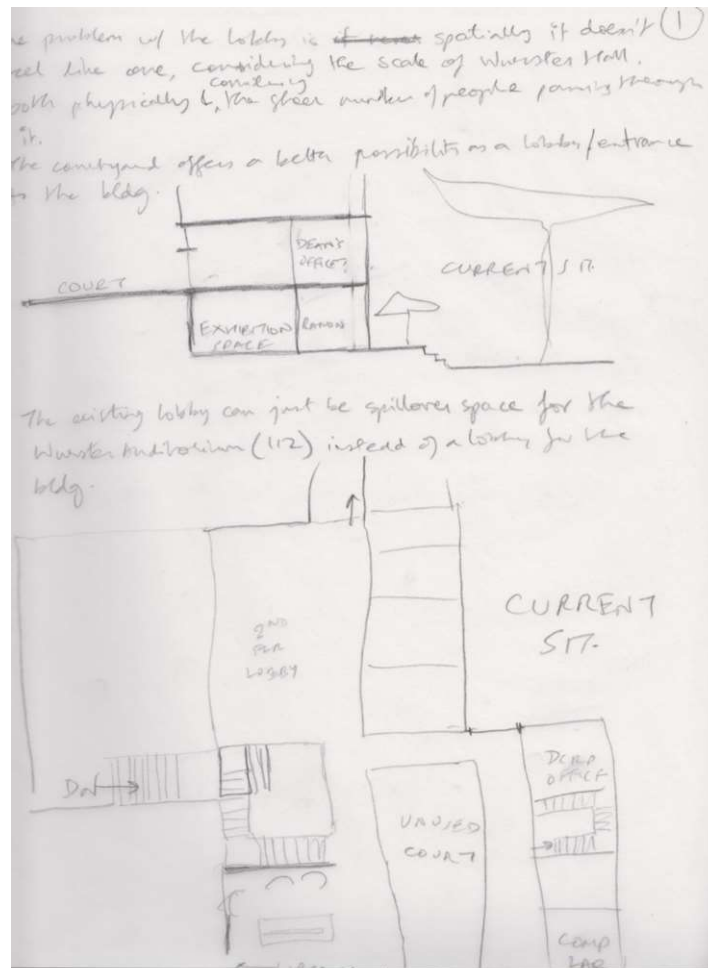 e problem w/ the lobby is spatially it doesn't 1
eel like one, considering the scale of Wurster Hall.
both physically & considering the sheer number of people passing through
it.
The courtyard offers a better possibility as a lobby/entrance
to the bldg.
DEAN'S
OFFICE?
CURRENT SIT.
COURT
EXHIBITION
SPACE
RAMON
The existing lobby can just be spillover space for the
Wurster Auditorium (112) instead of a lobby for the
bldg.
CURRENT
SIT.
2ND
FLR
LOBBY
DN
DCRP
OFFICE
UNUSED
COURT
COMP
LAB